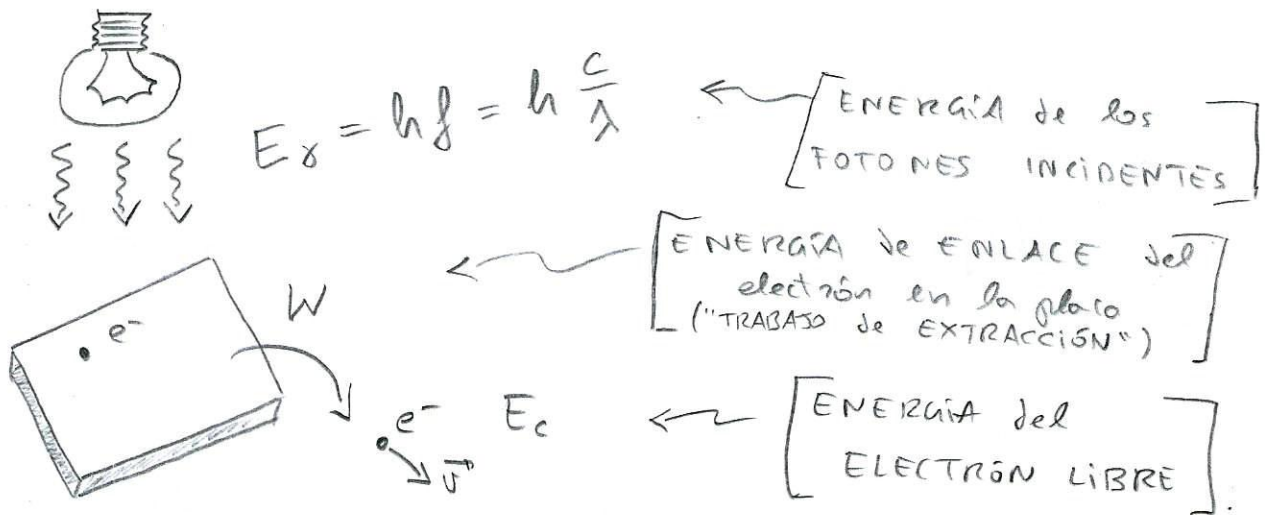 Eγ = hf = h c/λ
[ENERGÍA de los
FOTONES INCIDENTES]
[ENERGÍA de ENLACE del
electrón en la placa
("TRABAJO de EXTRACCIÓN")]
e⁻
W
e⁻ Ec
v⃗
[ENERGÍA del
ELECTRÓN LIBRE].